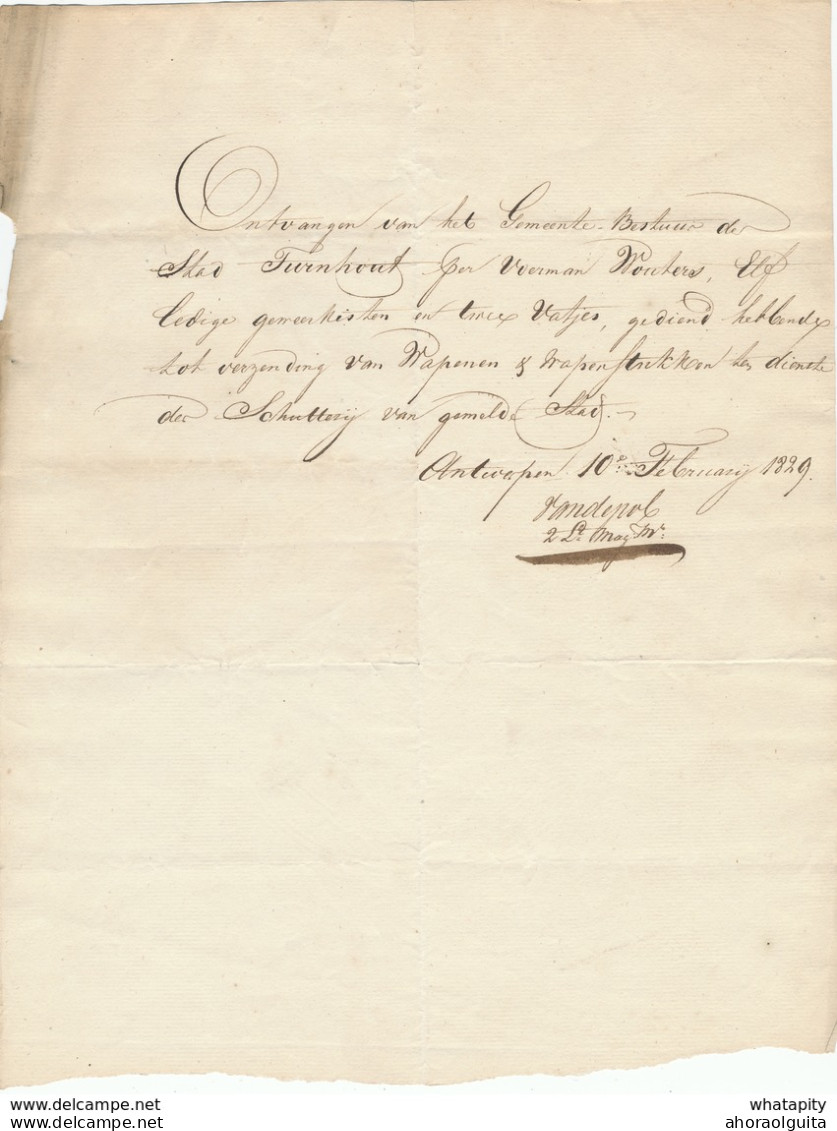 Ontvangen van het Gemeente-Bestuur der
Stad Turnhout per Voerman Wouters, Elf
ledige geweerkisten en twee Vatjes, gediend hebbende
tot verzending van Wapenen & wapenstukken ten dienste
der Schutterij van gemelde Stad.
Antwerpen 10e Februarij 1829.
Vandepol
2 Lt. Mag. Mr.
whatapity
ahoraolguita